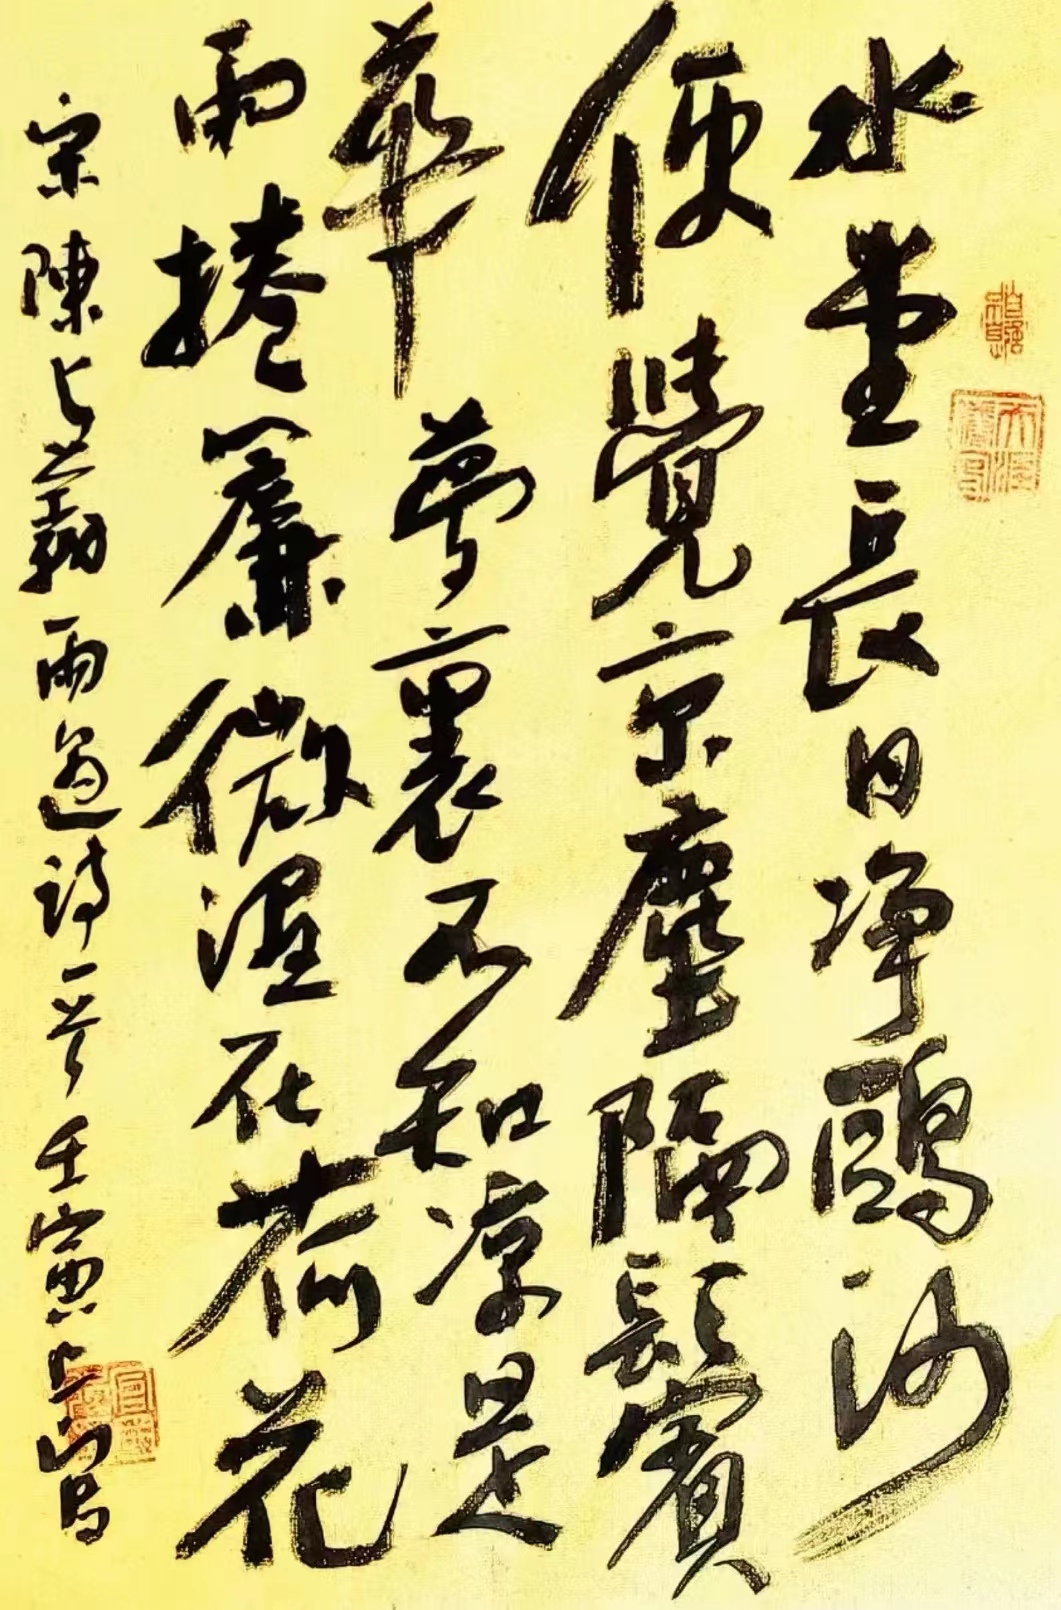 水堂長日净鷗沙
便覺京塵隔鬢
華夢裏不知凉是
雨捲簾微濕在荷花
宋陳与義雨過詩一首壬寅山寫